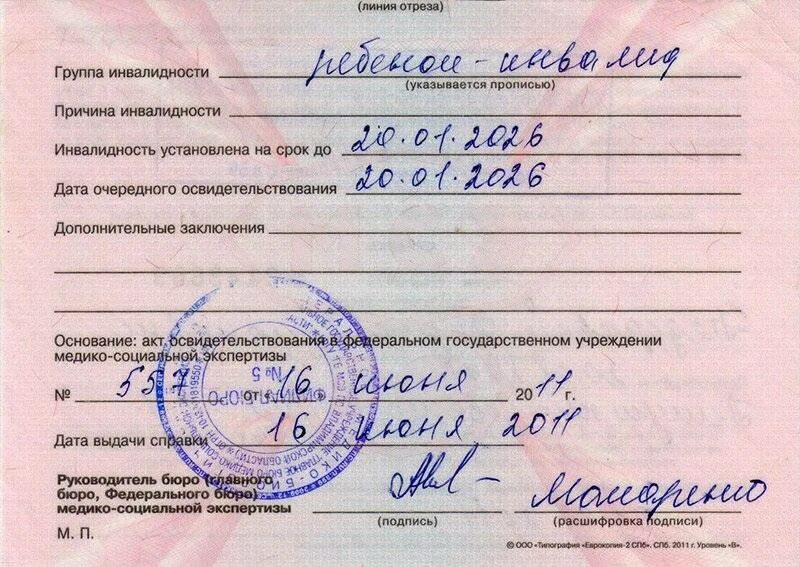 (линия отреза)
Группа инвалидности ребенок-инвалид
(указывается прописью)
Причина инвалидности
Инвалидность установлена на срок до 20.01.2026
Дата очередного освидетельствования 20.01.2026
Дополнительные заключения
Основание: акт освидетельствования в федеральном государственном учреждении
медико-социальной экспертизы
№ 557 от 16 июня 2011 г.
Дата выдачи справки 16 июня 2011
Руководитель бюро (главного
бюро, Федерального бюро)
медико-социальной экспертизы
(подпись) (расшифровка подписи)
М. П.
© ООО «Типография «Еврокопия-2 СПб». СПб. 2011 г. Уровень «В».
ФИЛИАЛ-БЮРО
№5